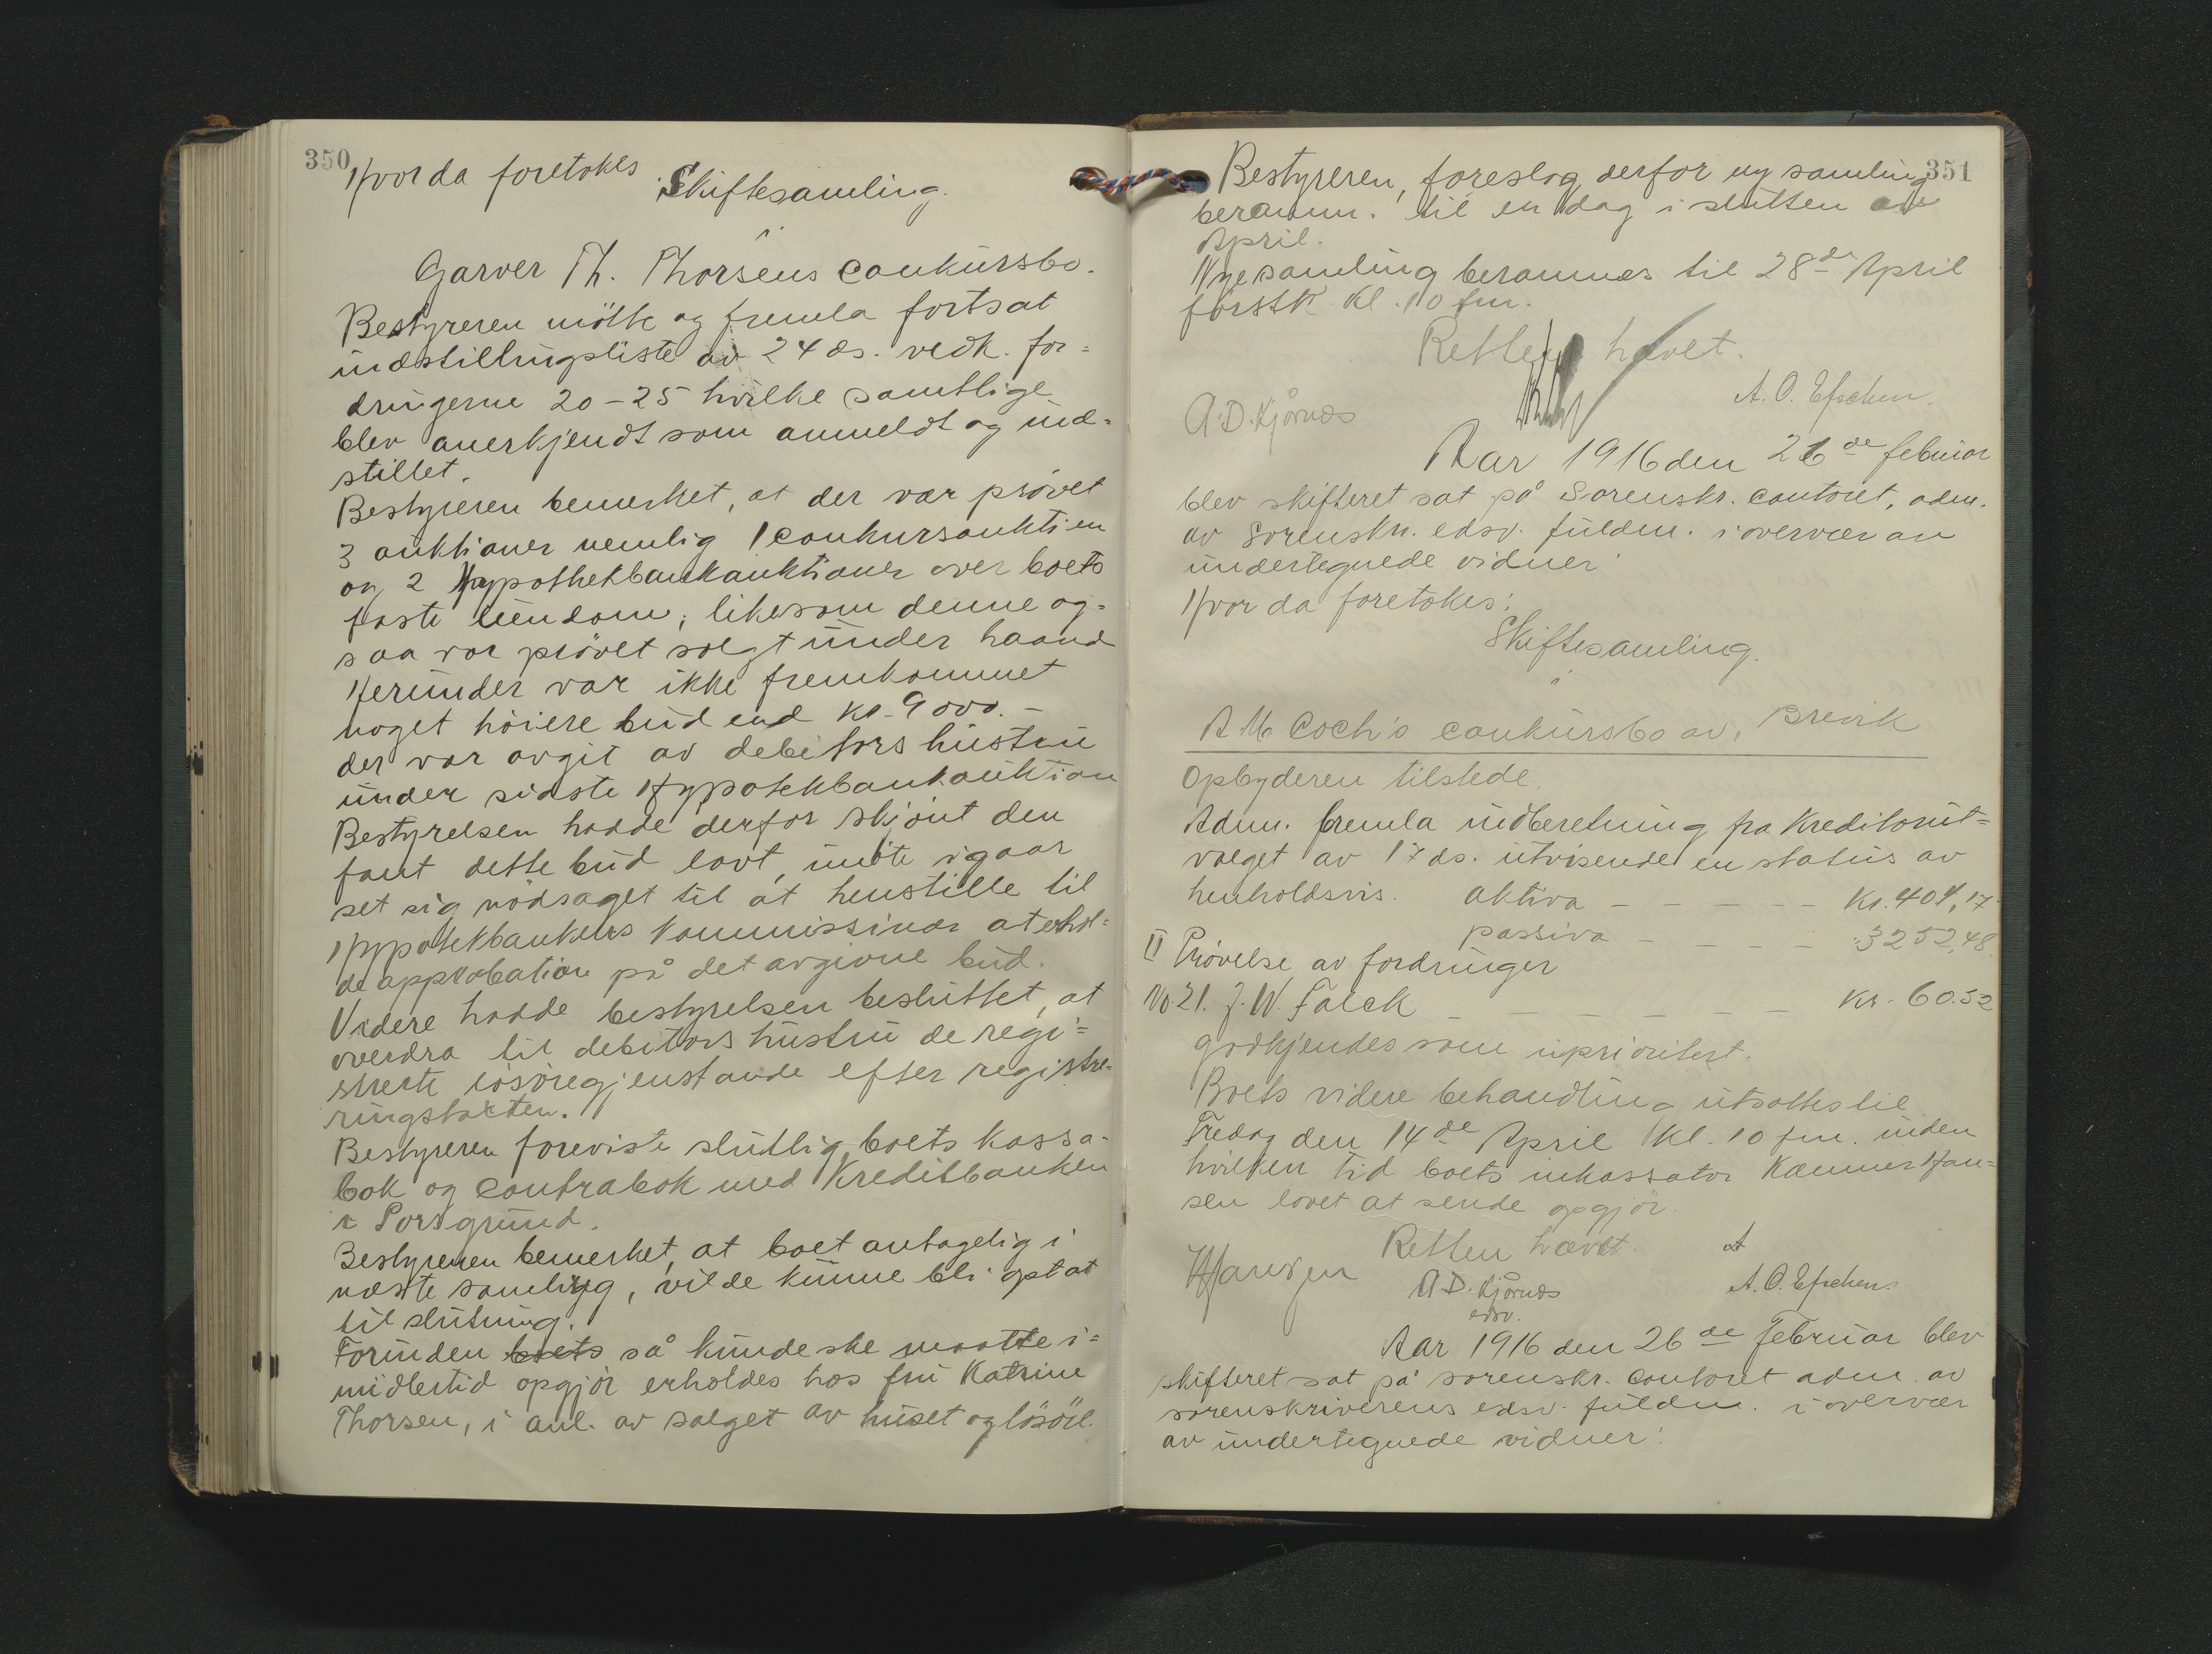 350
Hvorda foretokes
Skiftesamling.
Garver Th. Thorsens conkursbo.
Bestyreren mötte og fremla fortsat
indstillingsliste av 24 ds. vedk. for=
dringerne 20-25 hvilke samtlige
blev anerkjendt som anmeldt og ind=
stillet.
Bestyreren bemerket, at der var prövet
3 auktioner nemlig 1 conkursauktien
og 2 Hypothekbankauktioner over boets
faste eiendom, likesom denne og=
saa var prövet solgt under haand
Herunder var ikke fremkommet
noget höiere bud end Kr. 9000.-
der var avgit av debitors hustru
under sidste Hypotekbankauktion
Bestyrelsen hadde derfor skjönt den
fant dette bud lavt, maate igaar
set sig nödsaget til at henstille til
Hypotekbankens Kommissinær at erhol=
de approbation på det avgivne bud.
Videre hadde bestyrelsen besluttet, at
overdra til debitors hustru de regi=
strerte lösöregjenstande efter registre=
ringstaxten.
Bestyreren foreviste slutlig boets Kassa-
bok og Contrabok med Kreditbanken
i Porsgrund.
Bestyreren bemerket, at boet antagelig i
næste samling, vilde kunne bli optat
til slutning.
Forinden boets så kunde ske maatte i=
midlertid opgjör erholdes hos fru Katrine
Thorsen, i anl. av salget av huset og lösöre.
351
Bestyreren, foreslog derfor ny samling
beramm. til en dag i slutten av
April.
Nye samling berammes til 28de April
förstk. Kl. 10 fm.
Retten hævet.
A. O. Efschen.
A. D. Kjörnæs
Aar 1916 den 26de februar
blev skifteret sat på Sorenskr. contoret, adm.
av Sorenskr. edsv. fuldm. i overvær av
undertegnede vidner:
Hvor da foretokes:
Skiftesamling.
A M Coch's conkursbo av, Brevik
Opbyderen tilstede.
Adm. fremla indberetning fra Kreditorut=
valget av 17 ds. utvisende en status av
henholdsvis. aktiva - - - - - Kr. 404,17
passiva - - - - 3252,48.
II Prövelse av fordringer
No 21. J. W. Falck - - - - - - Kr. 60.52
godkjendes som uprioritert.
Boets videre behandling utsattes til
Fredag den 14de April Kl. 10 fm. inden
hvilken tid boets inkassator Kæmner Han=
sen lovet at sende opgjör.
Retten hævet.
A
Hansen
A. D. Kjörnæs
edsv.
A. O. Efschen.
Aar 1916 den 26de Februar blev
skifteret sat på sorenskr. Contoret adm. av
sorenskriverens edsv. fuldm. i overvær
av undertegnede vidner: